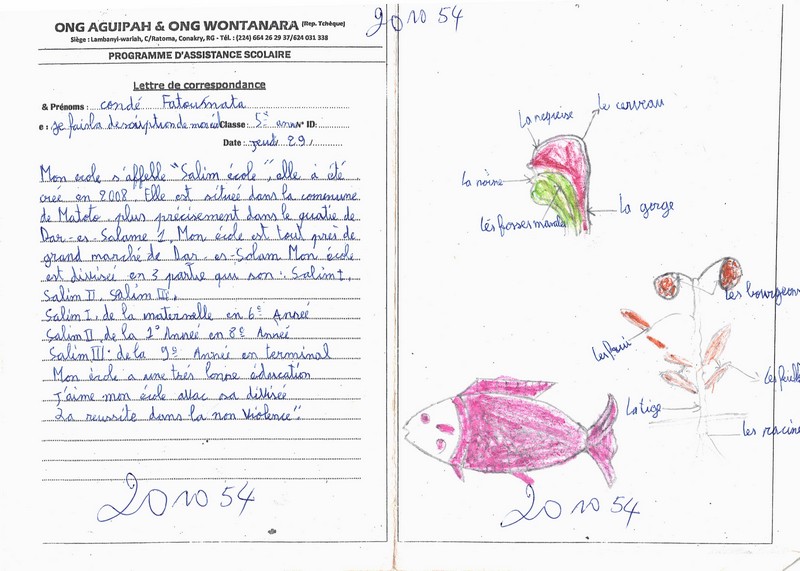 ONG AGUIPAH & ONG WONTANARA (Rep. Tchèque)
Siège : Lambanyi-wariah, C/Ratoma, Conakry, RG - Tél. : (224) 664 26 29 37/624 031 338
PROGRAMME D'ASSISTANCE SCOLAIRE
Lettre de correspondance
& Prénoms : condé Fatoumata
e : je fais la description de mon école Classe : 5è année N° ID:
Date : jeudi 29,
Mon école s'affelle "Salim école", elle a été
créé en 2008. Elle est située dans la commune
de Matoto plus précisement dans le quatie de
Dar-es-Salame 1. Mon école est tout près de
grand marché de Dar-es-Salam Mon école
est divisée en 3 partie qui son : Salim I,
Salim II, Salim III.
Salim I, de la maternelle en 6è Année
Salim II, de la 7è Année en 8è Année
Salim III : de la 9è Année en terminal
Mon école a une très bonne éducation
J'aime mon école avac sa divisée
La reussite dans la non violence".
201054
201054
le cerveau
la narine
la gorge
les fosses
les bourgeons
les feuill
La tige
les racine
201054